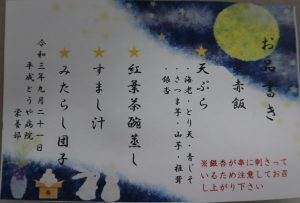 お品書き
赤飯
★天ぷら
・海老・とり天・青じそ
・さつま芋・山芋・椎茸
・銀杏
★紅葉茶碗蒸し
★すまし汁
★みたらし団子
令和三年九月二十一日
平成とうや病院
栄養部
※銀杏が串に刺さって
いるため注意してお召
し上がり下さい